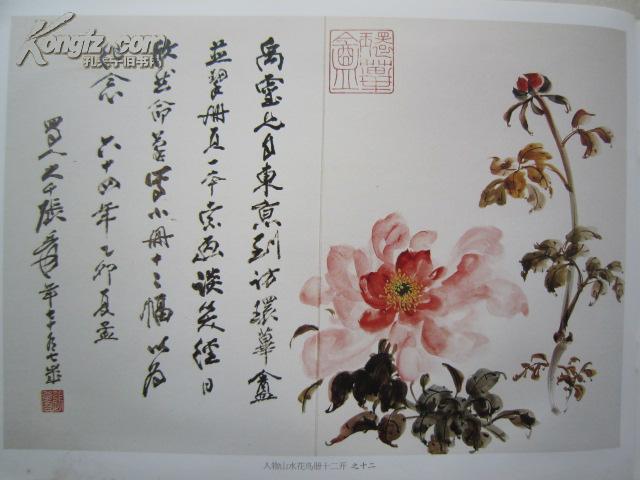 环荜盦
禹靈兄自東京到訪環蓽盦
並挈册頁一本索画談笑經日
欣然命筆寫小册十二幅以為
念 六十四年乙卯夏孟
蜀人大千張爰年七十有七歲
Kongfz.com
孔夫子旧书网
人物山水花鸟册十二开 之十二